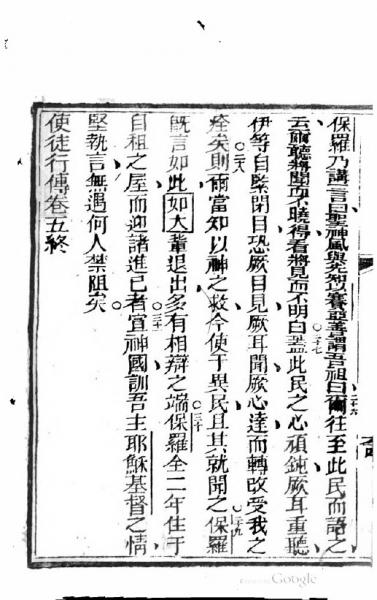 保羅乃講一言曰聖神風與先知以賽亞善謂吾祖曰爾往至此民而語之
云爾聽將聞而不曉得看將見而不明白蓋此民之心頑鈍厥耳重聽
伊等自緊閉目恐厥目見厥耳聞厥心達而轉改受我之
痊矣則爾當知以神之救今使于異民且其就聞之保羅
既言如此如大輩退出多有相辯之端保羅全二年住于
自租之屋而迎諸進己者宣神國訓吾主耶穌基督之情
堅執言無遇何人禁阻矣
使徒行傳卷五終
Google